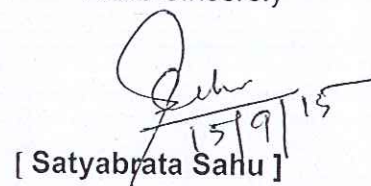 Sahu
15/9/15
[ Satyabrata Sahu ]